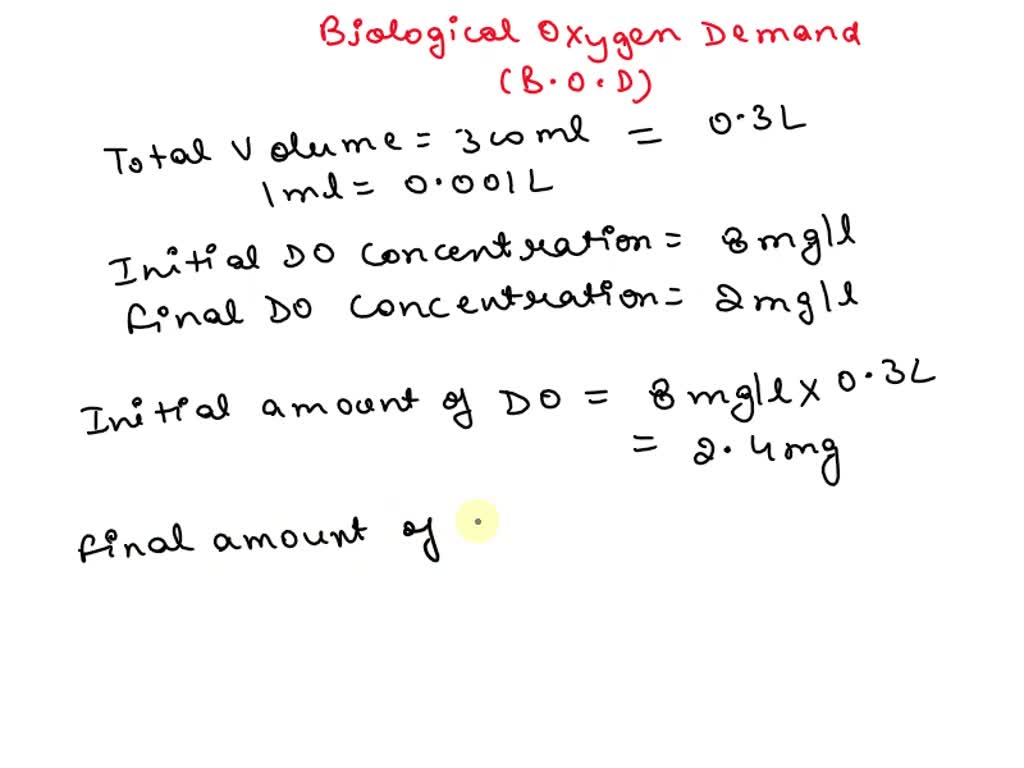 Biological Oxygen Demand
(B.O.D)
Total Volume = 300ml = 0.3L
1ml = 0.001L
Initial DO concentration = 8mg/l
final DO concentration = 2mg/l
Initial amount of DO = 8mg/l x 0.3L
= 2.4mg
final amount of